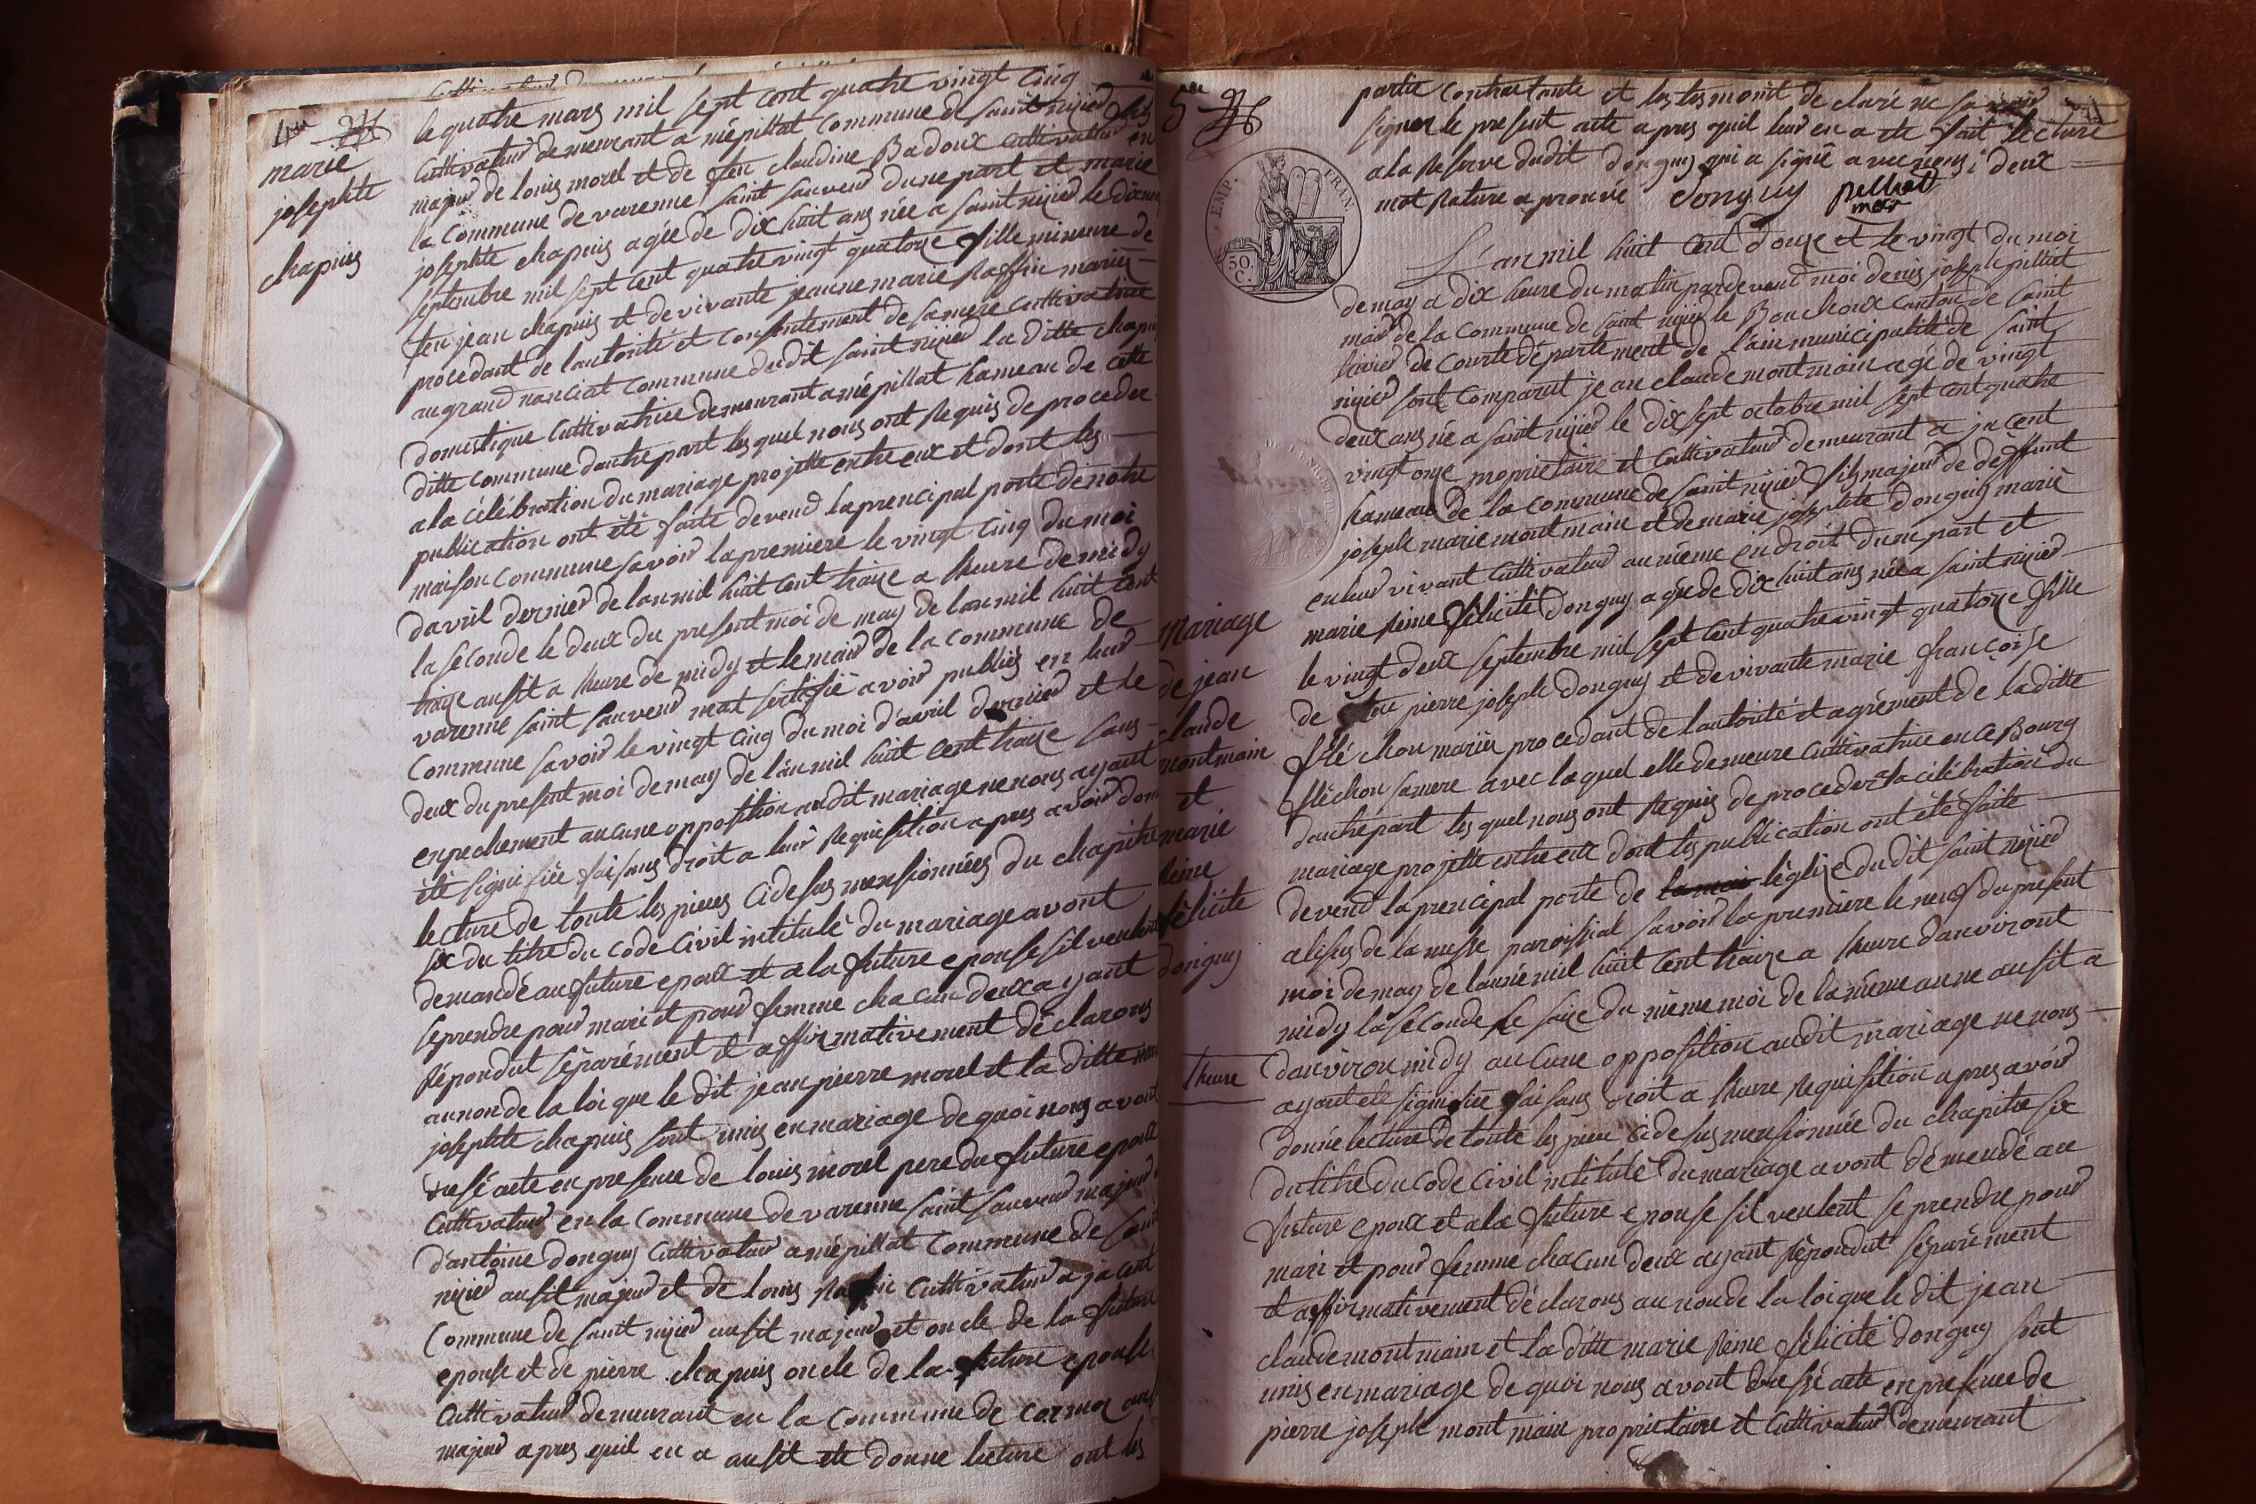 marie
josephte
chapuis
le quatre mars mil sept cent quatre vingt cinq
cultivateur demeurant a mépillat commune de saint nizier fils
majeur de louis morel et de feu claudine Badoux cultivateur en
la commune de varenne saint sauveur dune part et marie
josephte chapuis agée de dix huit ans née a saint nizier le
septembre mil sept cent quatre vingt quatorze fille mineure de
feu jean chapuis et de vivante jeanne marie Raffin mariés
procedant de lautorité et consentement de samere cultivatrice
au grand nanciat commune dudit saint nizier la ditte chapuis
domestique cultivatrice demeurant a mépillat hameau de cette
ditte commune dautre part les quel nous ont Requis de proceder
a la célébration du mariage projetté entre eux et dont les
publication ont été faite devend laprencipal porte de notre
maison commune savoir lapremiere le vingt cinq du moi
davril dernier de lanmil huit cent traize a heure de midy
la seconde le deux du present moi de may de lan mil huit cent
traize ausit a heure de midy et le maire de la commune de
varenne saint sauveur mat sertifié avoir publiés en leur
commune savoir le vingt cinq du moi d'avril dernier et le
deux du present moi de may de lan mil huit cent traize sans
enpechement aucune opposition audit mariage ne nous ayant
été signifiée faisans droit a leur Requisition apres avoir donné
lecture de toute les pieces cidesus mensionnées du chapitre
six du titre du code civil intitulé du mariage avont
demandé au future epoux et a la future epouse sil veulent
seprendre pour mari et pour femme chacun deux ayant
répondut séparément et affirmativement déclarons
aunonde la loi que le dit jean pierre morel et la ditte marie
josephte chapuis sont unis en mariage de quoi nous avont
dressé acte en presence de louis morel pere du future epoux
cultivateur en la commune de varenne saint sauveur majeur
d'antoine donguy cultivateur a mépillat commune de saint
nizier ausit majeur et de louis Raffin cultivateur a jacent
commune de saint nizier ausit majeur et oncle de la future
epouse et de pierre chapuis oncle de la future epouse
cultivateur demeurant en la commune de cormoz
majeur apres quil en a ausit eté donne lecture ont les
partie contractante et les tesmoint de claré ne savoir
signer le present acte apres quil leur en a eté fait lecture
a la Reserve dudit donguy qui a signé avec nous ; deux
mot Rature aprouvé donguy pelliat
mair
L'an mil huit cent douze et le vingt du moi
de may a dix heure du matin pardevant moi denis joseph pilliat
mair de la commune de saint nizier le Bouchoux canton de saint
trivier de courte département de l'ain municipalité de saint
nizier sont comparut jean claude montmain agé de vingt
deux ans né a saint nizier le dix sept octobre mil sept cent quatre
vingt onze proprietaire et cultivateur demeurant a jacent
hameau de la commune de saint nizier fils majeur de déffunt
joseph marie mont main et de marie josephte donguy marié
en leur vivant cultivateur au même endroit dune part et
marie Reine félicité donguy agée de dix huit ans née a saint nizier
le vingt deux septembre mil sept cent quatre vingt quatorze fille
de feu pierre joseph donguy et de vivante marie françoise
fléchon mariés procedant de lautorité et agrément de laditte
fléchon samere avec laquel elle demeure cultivatrice en ce Bourg
dautre part les quel nous ont Requis de proceder a la célébration du
mariage projetté entre eux dont les publication ont été faite
devend la prencipal porte de la mai léglize du dit saint nizier
alisus de la messe paroissial savoir la premiere le neuf du present
moi de may de lanné mil huit cent traize a heure danviront
midy la seconde le saize du même moi de la même anne ausit a
heure danviron midy aucune opposition audit mariage ne nous
ayant eté signifiée faisans droit a leure Requisition apres avoir
donné lecture de toute les piece cidesus mensionnée du chapitre six
du titre du code civil intitulé du mariage avont démendé au
future epoux et a la future epouse sil veulent se prendre pour
mari et pour femme chacun deux ayant répondut séparément
et affirmativement déclarons au nonde la loi que le dit jean
claude montmain et la ditte marie Reine félicité donguy sont
unis en mariage de quoi nous avont dressé acte en presence de
pierre joseph mont main proprietaire et cultivateur demeurant
mariage
de jean
claude
montmain
et
marie
Reine
félicité
donguy
EMP. FRAN.
50.
C.